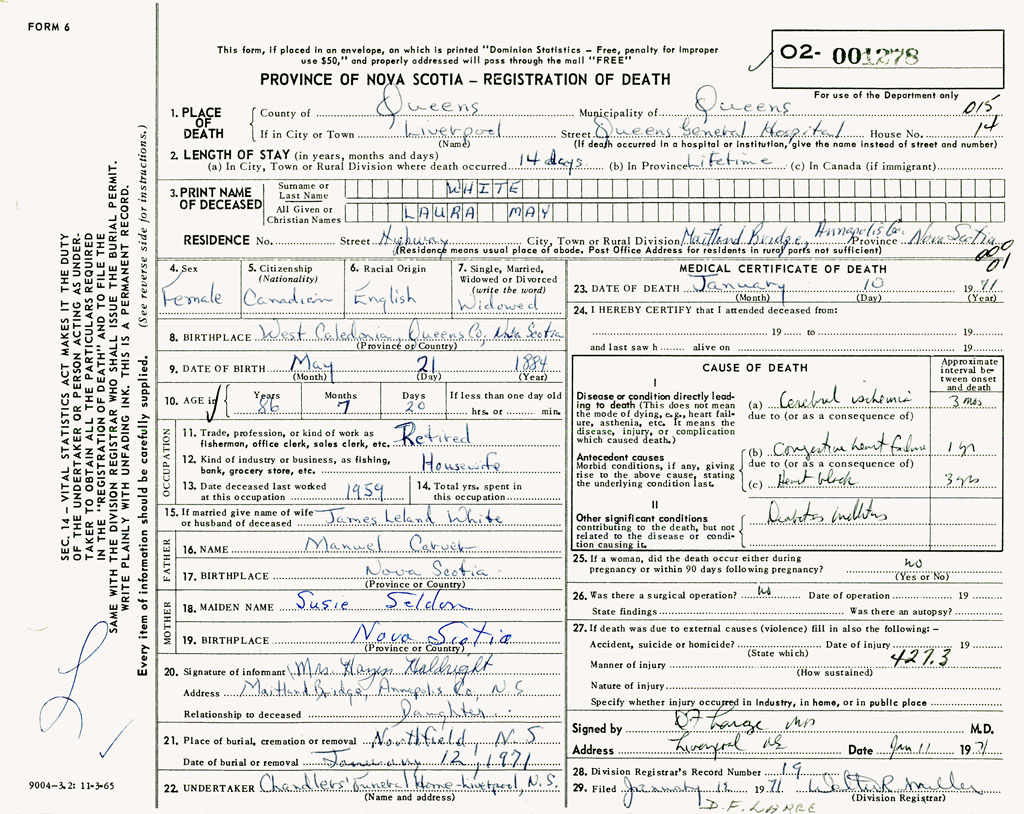 FORM 6
This form, if placed in an envelope, on which is printed "Dominion Statistics – Free, penalty for improper
use $50," and properly addressed will pass through the mail "FREE"
02- 001278
PROVINCE OF NOVA SCOTIA – REGISTRATION OF DEATH
For use of the Department only
015
1. PLACE OF DEATH
County of Queens Municipality of Queens
If in City or Town Liverpool Street Queens General Hospital House No. 14
(Name) (If death occurred in a hospital or institution, give the name instead of street and number)
2. LENGTH OF STAY (in years, months and days)
(a) In City, Town or Rural Division where death occurred 14 days (b) In Province Lifetime (c) In Canada (if immigrant)
3. PRINT NAME OF DECEASED
Surname or Last Name WHITE
All Given or Christian Names LAURA MAY
RESIDENCE No. Street Highway City, Town or Rural Division Maitland Bridge, Annapolis Co. Province Nova Scotia
(Residence means usual place of abode. Post Office Address for residents in rural parts not sufficient)
01
4. Sex
Female
5. Citizenship
(Nationality)
Canadian
6. Racial Origin
English
7. Single, Married,
Widowed or Divorced
(write the word)
Widowed
8. BIRTHPLACE West Caledonia, Queens Co, Nova Scotia
(Province or Country)
9. DATE OF BIRTH May 21 1884
(Month) (Day) (Year)
10. AGE in Years Months Days If less than one day old
86 7 20 hrs. or min.
OCCUPATION
11. Trade, profession, or kind of work as
fisherman, office clerk, sales clerk, etc. Retired
12. Kind of industry or business, as fishing,
bank, grocery store, etc. Housewife
13. Date deceased last worked
at this occupation 1959
14. Total yrs. spent in
this occupation
15. If married give name of wife
or husband of deceased James Leland White
FATHER
16. NAME Manuel
17. BIRTHPLACE Nova Scotia
(Province or Country)
MOTHER
18. MAIDEN NAME Susie Seldon
19. BIRTHPLACE Nova Scotia
(Province or Country)
20. Signature of informant Mrs.
Address Maitland Bridge, Annapolis Co., N.S
Relationship to deceased Daughter
21. Place of burial, cremation or removal Northfield, N.S
Date of burial or removal January 12, 1971
22. UNDERTAKER Chandlers' Funeral Home-Liverpool, N.S.
(Name and address)
MEDICAL CERTIFICATE OF DEATH
23. DATE OF DEATH January 10 1971
(Month) (Day) (Year)
24. I HEREBY CERTIFY that I attended deceased from:
19 to 19
and last saw h alive on 19
CAUSE OF DEATH
Approximate
interval be-
tween onset
and death
I
Disease or condition directly lead-
ing to death (This does not mean
the mode of dying, e.g., heart fail-
ure, asthenia, etc. It means the
disease, injury, or complication
which caused death.)
(a) Cerebral ischemia 3 mos
due to (or as a consequence of)
Antecedent causes
Morbid conditions, if any, giving
rise to the above cause, stating
the underlying condition last.
(b) Congestive heart failure 1 yr
due to (or as a consequence of)
(c) Heart block 3 yrs
II
Other significant conditions
contributing to the death, but not
related to the disease or condi-
tion causing it.
Diabetes mellitus
25. If a woman, did the death occur either during
pregnancy or within 90 days following pregnancy? no
(Yes or No)
26. Was there a surgical operation? no Date of operation 19
State findings Was there an autopsy?
27. If death was due to external causes (violence) fill in also the following: –
Accident, suicide or homicide? Date of injury 19
(State which)
427.3
Manner of injury
(How sustained)
Nature of injury
Specify whether injury occurred in industry, in home, or in public place
Signed by D F Large MD M.D.
Address Liverpool NS Date Jan 11 1971
28. Division Registrar's Record Number 19
29. Filed January 12 1971 Walter R Miller
(Division Registrar)
D.F. LARGE
SEC. 14 – VITAL STATISTICS ACT MAKES IT THE DUTY
OF THE UNDERTAKER OR PERSON ACTING AS UNDER-
TAKER TO OBTAIN ALL THE PARTICULARS REQUIRED
IN THE "REGISTRATION OF DEATH" AND TO FILE THE
SAME WITH THE DIVISION REGISTRAR WHO SHALL ISSUE THE BURIAL PERMIT.
WRITE PLAINLY WITH UNFADING INK. THIS IS A PERMANENT RECORD.
Every item of information should be carefully supplied. (See reverse side for instructions.)
9004-3.2: 11-3-65